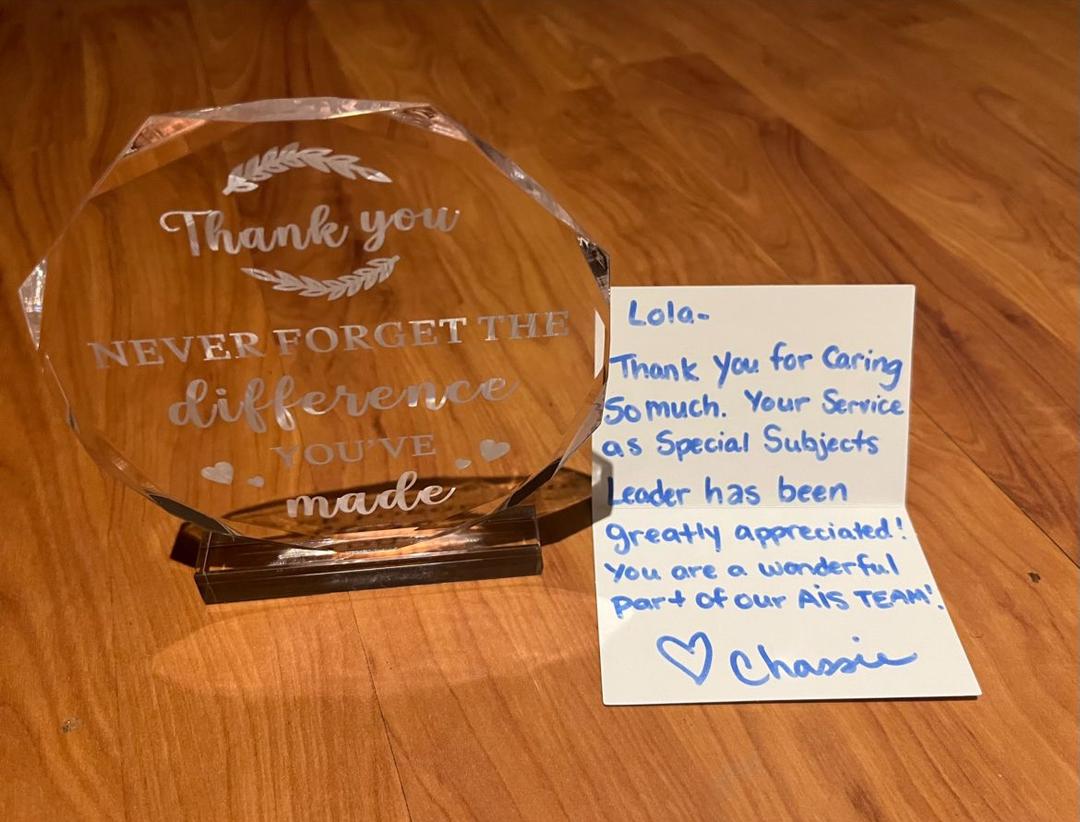 Thank you
NEVER FORGET THE
difference
YOU'VE
made
Lola-
Thank you for Caring
So much. Your Service
as Special Subjects
Leader has been
greatly appreciated!
You are a wonderful
part of our AiS TEAM!
♡ Chassie